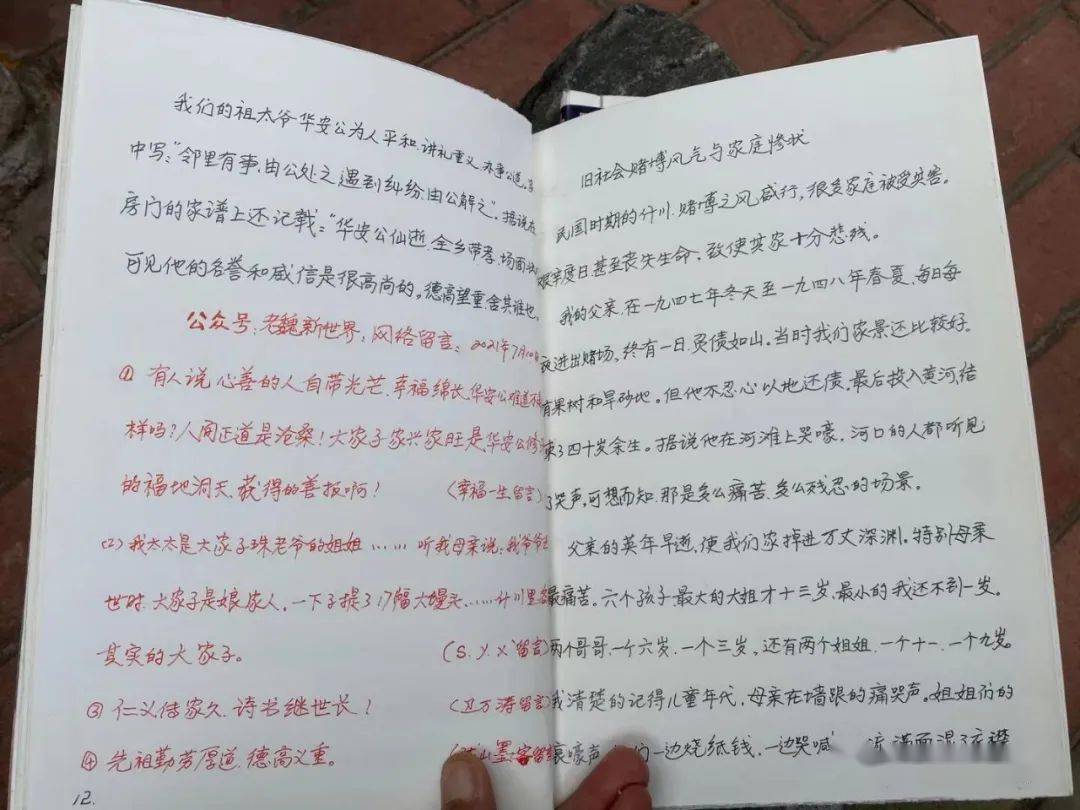 我们的祖太爷华安公为人平和.讲礼重义.办事公道.
中写:“邻里有事.由公处之.遇到纠纷.由公解之”.据说在
房门的家谱上还记载:“华安公仙逝.全乡带孝.场面
可见他的名誉和威信是很高尚的。德高望重.舍其谁也.
公众号:老魏新世界,网络留言:2021年7月10日
① 有人说.心善的人自带光芒.幸福绵长.华安公难道不
样吗?人间正道是沧桑!大家子家兴家旺是华安公修
的福地洞天.获得的善报啊! (幸福一生留言)
(2)我太太是大家子珠老爷的姐姐……听我母亲说:我爷爷去
世时.大家子是娘家人.一下子提了17幅大馒头……什川里
其实的大家子。 (S.YX留言)
③ 仁义传家久.诗书继世长! (卫万涛留言)
④ 先祖勤劳厚道.德高义重。
12.
旧社会赌博风气与家庭惨状
民国时期的什川.赌博之风盛行,很多家庭被受灾害.
艰辛度日.甚至丧失生命.致使其家十分悲残。
我的父亲.在一九四七年冬天至一九四八年春夏.每日每
夜进出赌场,终有一日.负债如山。当时我们家景还比较好.
有果树和旱砂地。但他不忍心以地还债.最后投入黄河.结
束了四十岁余生。据说他在河滩上哭嚎.河口的人都听见
了哭声,可想而知.那是多么痛苦.多么残忍的场景。
父亲的英年早逝,使我们家掉进万丈深渊。特别母亲
最痛苦。六个孩子最大的大姐才十三岁.最小的我还不到一岁。
两个哥哥.一个六岁.一个三岁。还有两个姐姐.一个十一.一个九岁。
我清楚的记得儿童年代.母亲在墙跟的痛哭声。姐姐们的
哀嚎声 们一边烧纸钱.一边哭喊